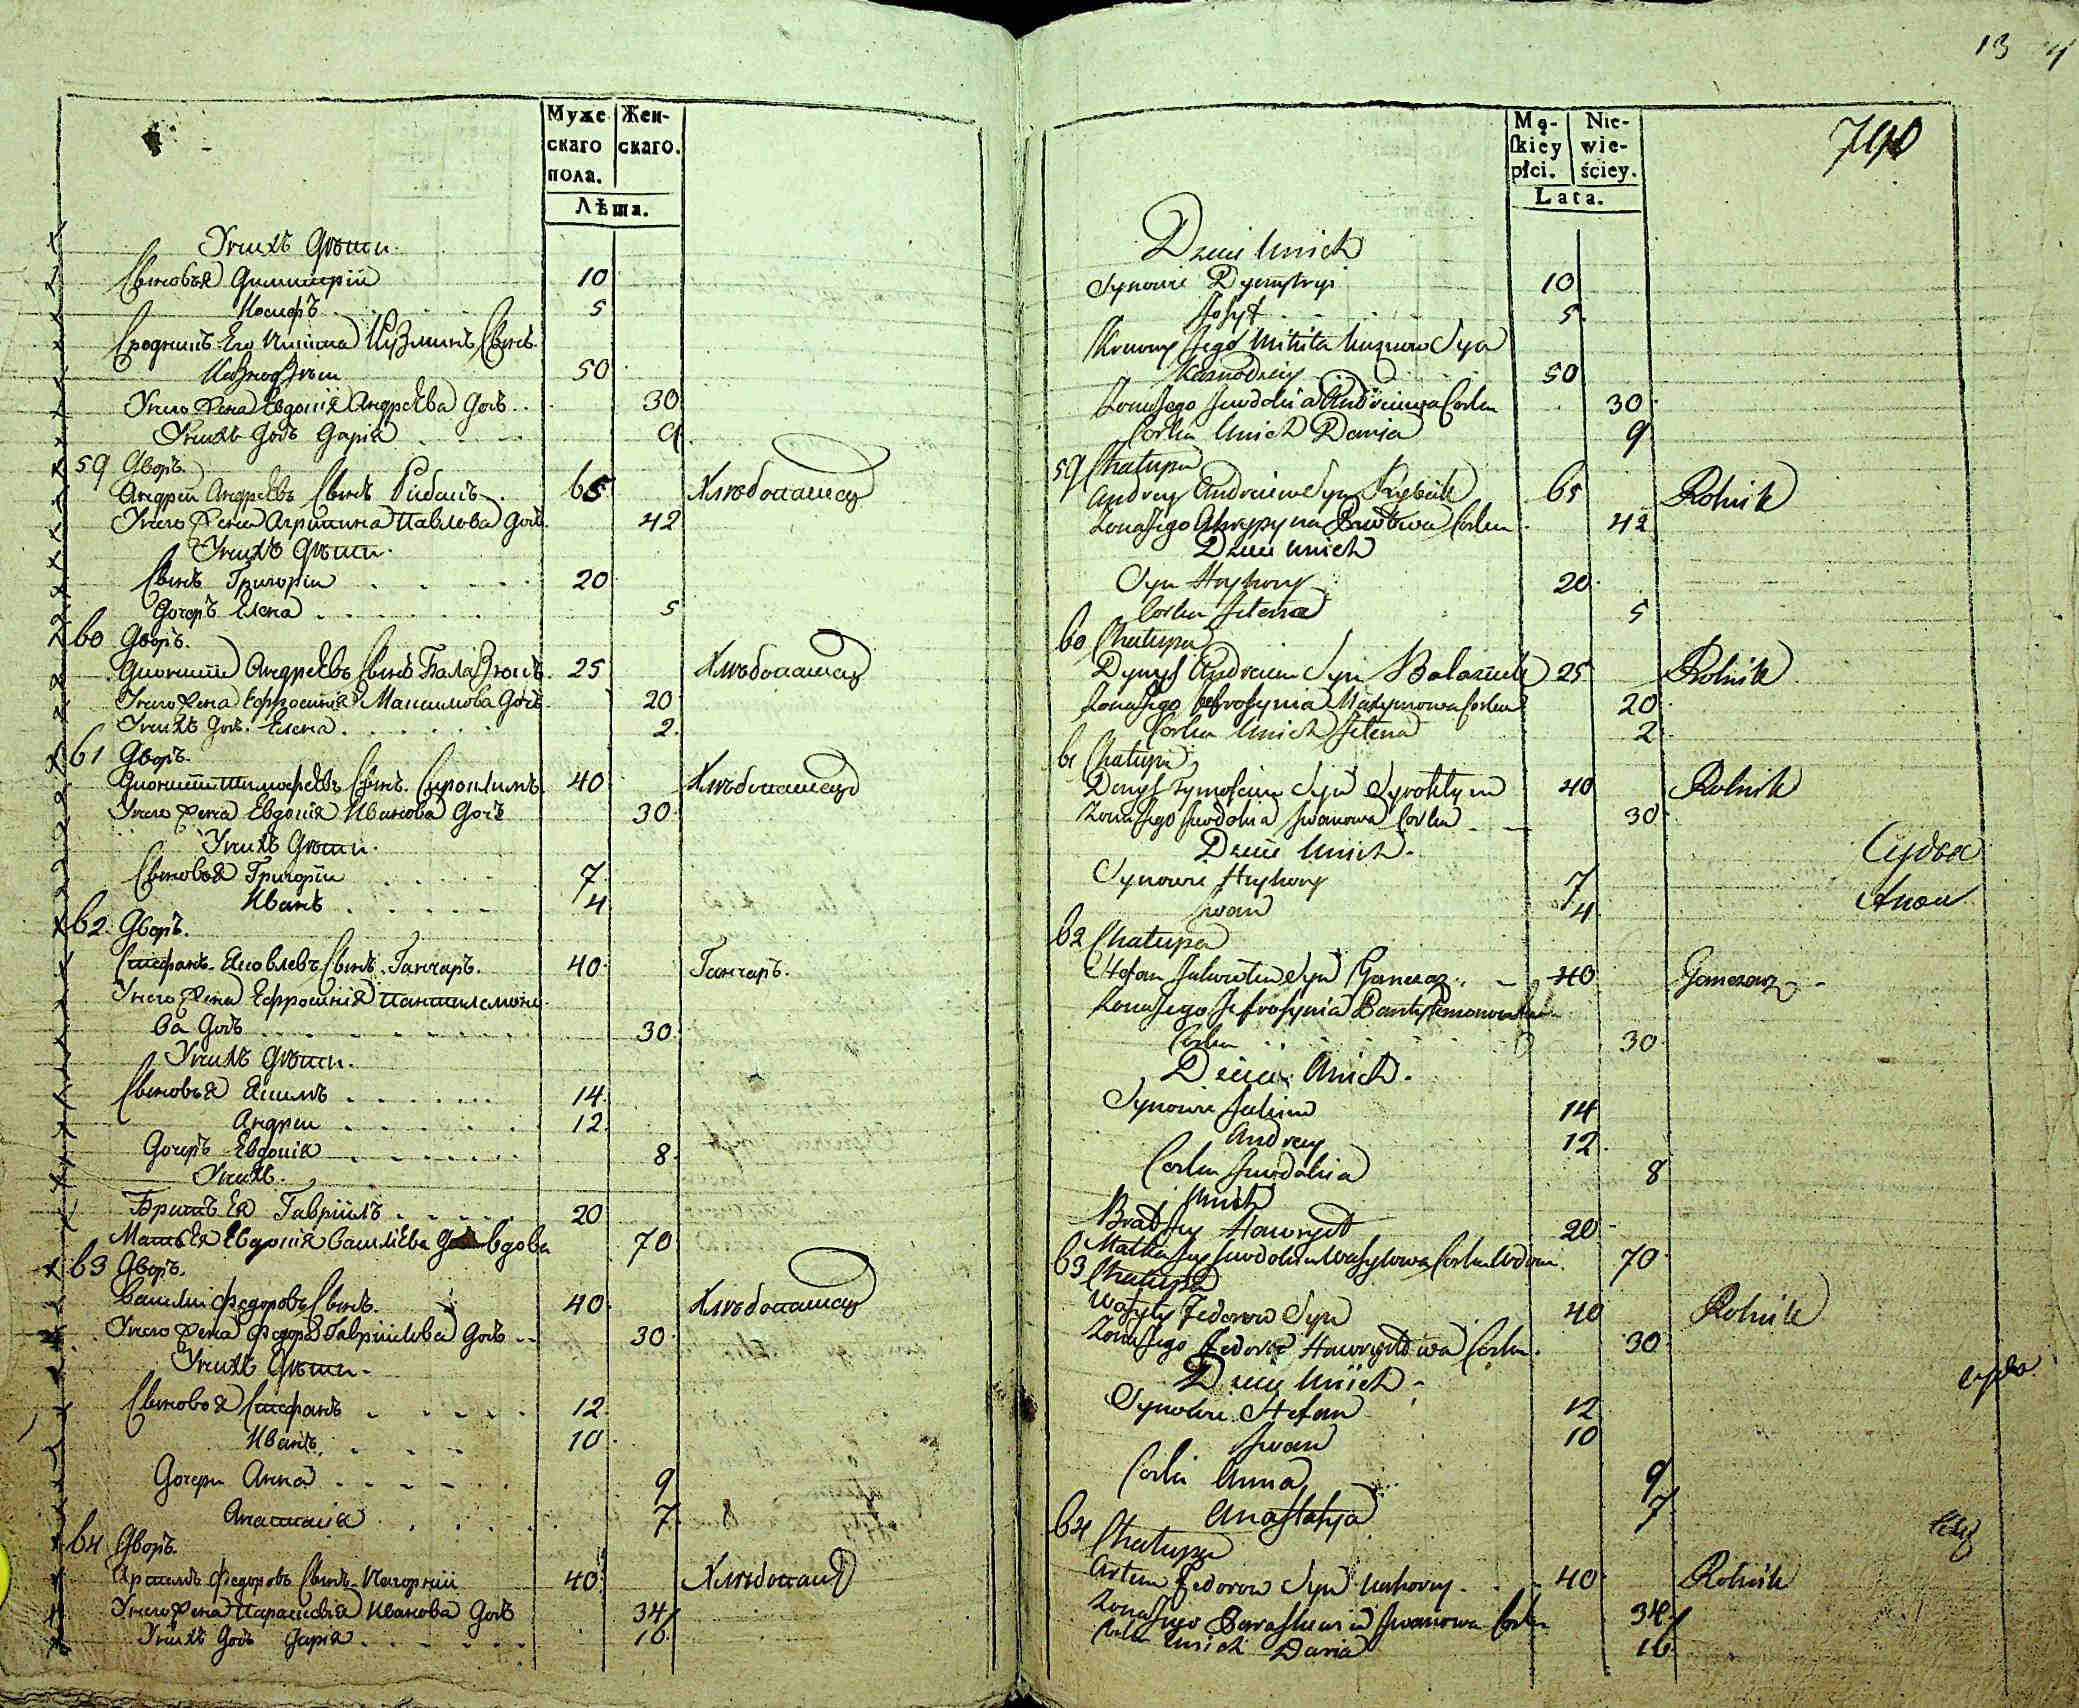 Муже
скаго
пола.
Жен-
скаго.
Лѣта.
У нихъ Дѣти
Сыновья Димитрій 10
Иосифъ 5
Сродникъ Его Никита Кузминъ Сынъ
50
У него Жена Евдокія Андрѣева Дочь 30
У нихъ Дочь Дарія 9
59 Дворъ.
Андрей Андрѣевъ Сынъ Рибакъ 65 Хлѣбопашец
У него Жена Агрипина Павлова Дочь 42
У нихъ Дѣти.
Сынъ Григорій 20
Дочерь Елена 5
60 Дворъ.
Дионисій Андрѣевъ Сынъ Балазюкъ 25 Хлѣбопашец
У него Жена Ефросинія Максимова Дочь 20
У нихъ Дочь Елена 2.
61 Дворъ.
Дионисій Тимофѣевъ Сынъ Сироклимъ 40 Хлѣбопашец
У него Жена Евдокія Иванова Дочь 30
У нихъ Дѣти.
Сыновья Григорій 7
Иванъ 4
62. Дворъ.
Стефанъ Яковлевъ Сынъ Ганчаръ. 40 Ганчаръ.
У него Жена Ефросинія Пантилемоно
ва Дочь 30
У нихъ Дѣти.
Сыновья Якимъ 14
Андрей 12
Дочерь Евдокія 8
У нихъ.
Братъ Ея Гавріилъ 20
Мать Ея Евдокія Василіева Дочь Вдова 70
63 Дворъ.
Василий Федоровъ Сынъ. 40 Хлѣбопашец
У него Жена Федора Гавріилова Дочь 30
У нихъ Дѣти.
Сыновья Стефанъ 12
Иванъ 10
Дочери Анна 9
Анастасія 7
64 Дворъ.
Артемъ Федоровъ Сынъ Нагорній 40 Хлѣбопаш
У него Жена Параскевія Иванова Дочь 34
У нихъ Дочь Дарія 16
13
790
Mę-
ſkiey
płci.
Nie-
wie-
ściey.
Lata.
Dzieci u nich
Synowie Dymytryi 10
Josyf 5
Krewny Jego Mikita Kuzmow Syn
50
Zona Jego Jewdokia Andreiewa Corka 30
Corka u nich Darija 9
59 Chałupa
Andrey Andreiew Syn Rybak 65 Rolnik
Zona Jego Ahrypyna Pawłowa Corka 42
Dzieci u nich
Syn Hryhory 20
Corka Jełena 5
60 Chałupa
Dynys Andreiew Syn Balaziuk 25 Rolnik
Zona Jego Jefrosynia Maxymowa Corka 20
Corka u nich Jełena 2
61 Chałupa
Denys Tymofeiew Syn Syroklym 40 Rolnik
Zona Jego Jewdokia Iwanowa Corka 30
Dzieci u nich.
Synowie Hryhory 7
Iwan 4
62 Chałupa
Stefan Jakowlew Syn Ganczar 40 Ganczarz
Zona Jego Jefrosynia Pantylemonowa
Corka 30
Dzieci u nich.
Synowie Jakim 14
Andrey 12
Corka Jewdokia 8
u nich
Brat Jey Hawryło 20
Matka Jey Jewdokia Wasylowa Corka Wdowa 70
63 Chałupa
Wasyly Fedorow Syn 40 Rolnik
Zona Jego Fedora Hawryłowa Corka 30
Dzieci u nich
Synowie Stefan 12
Iwan 10
Corki Anna 9
Anastasya 7
64 Chałupa
Artem Fedorow Syn 40 Rolnik
Zona Jego Paraskewia Iwanowa Corka 34
Corka u nich Daria 16